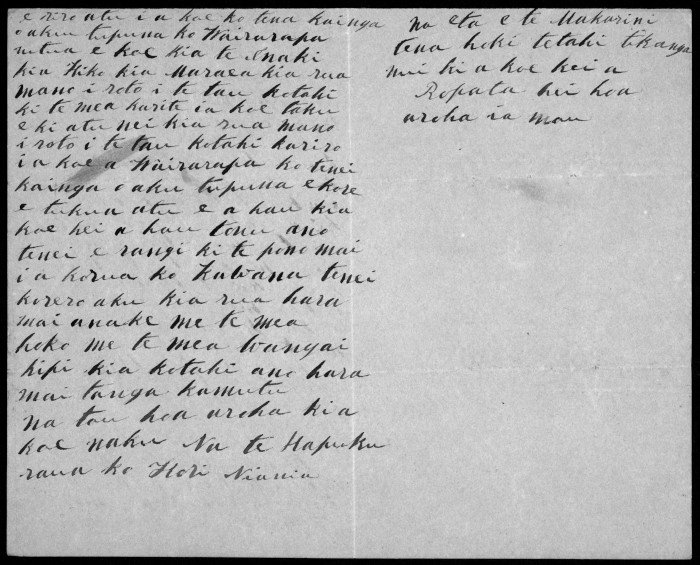 e riro atu i a koe ko tena kainga
o aku tupuna ko Wairarapa
mehua e koe kia te
kia Hiko kia Maraea kia rua
mano i roto i te tau kotahi
ki te mea karite ia koe taku
e ki atu nei kia rua mano
i roto i te tau kotahi kariro
i a koe a Wairarapa ko tenei
kainga o aku tupuna ekore
e tukua atu e a hau kia
koe kei a hau tonu ano
tenei e rangi ki te pono mai
i a korua ko Kawana tenei
korero aku kia rua hara
mai anake me te mea
hoko me te mea wangai
hipi kia kotahi ano hara
mai tanga kamutu
na tau hoa aroha kia
koe naku Na te Hapuku
raua ko Hori Niania
na eta e te Makarini
tena hoki tetahi tikanga
mii ki a koe kei a
Ropata hei hoa
aroha ia mau